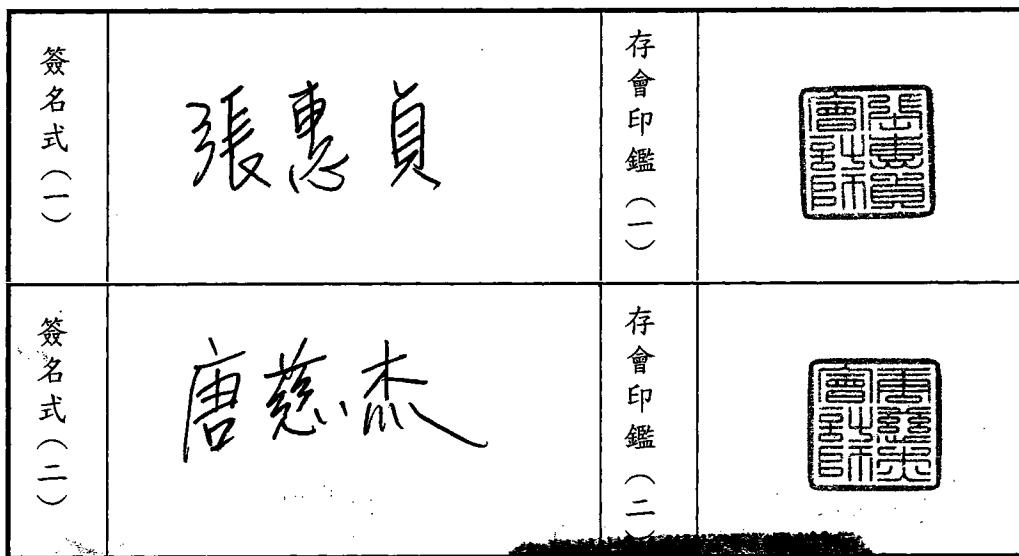 簽名式(一)
張惠貞
存會印鑑(一)
張惠貞會計師
簽名式(二)
唐慈杰
存會印鑑(二)
唐慈杰會計師